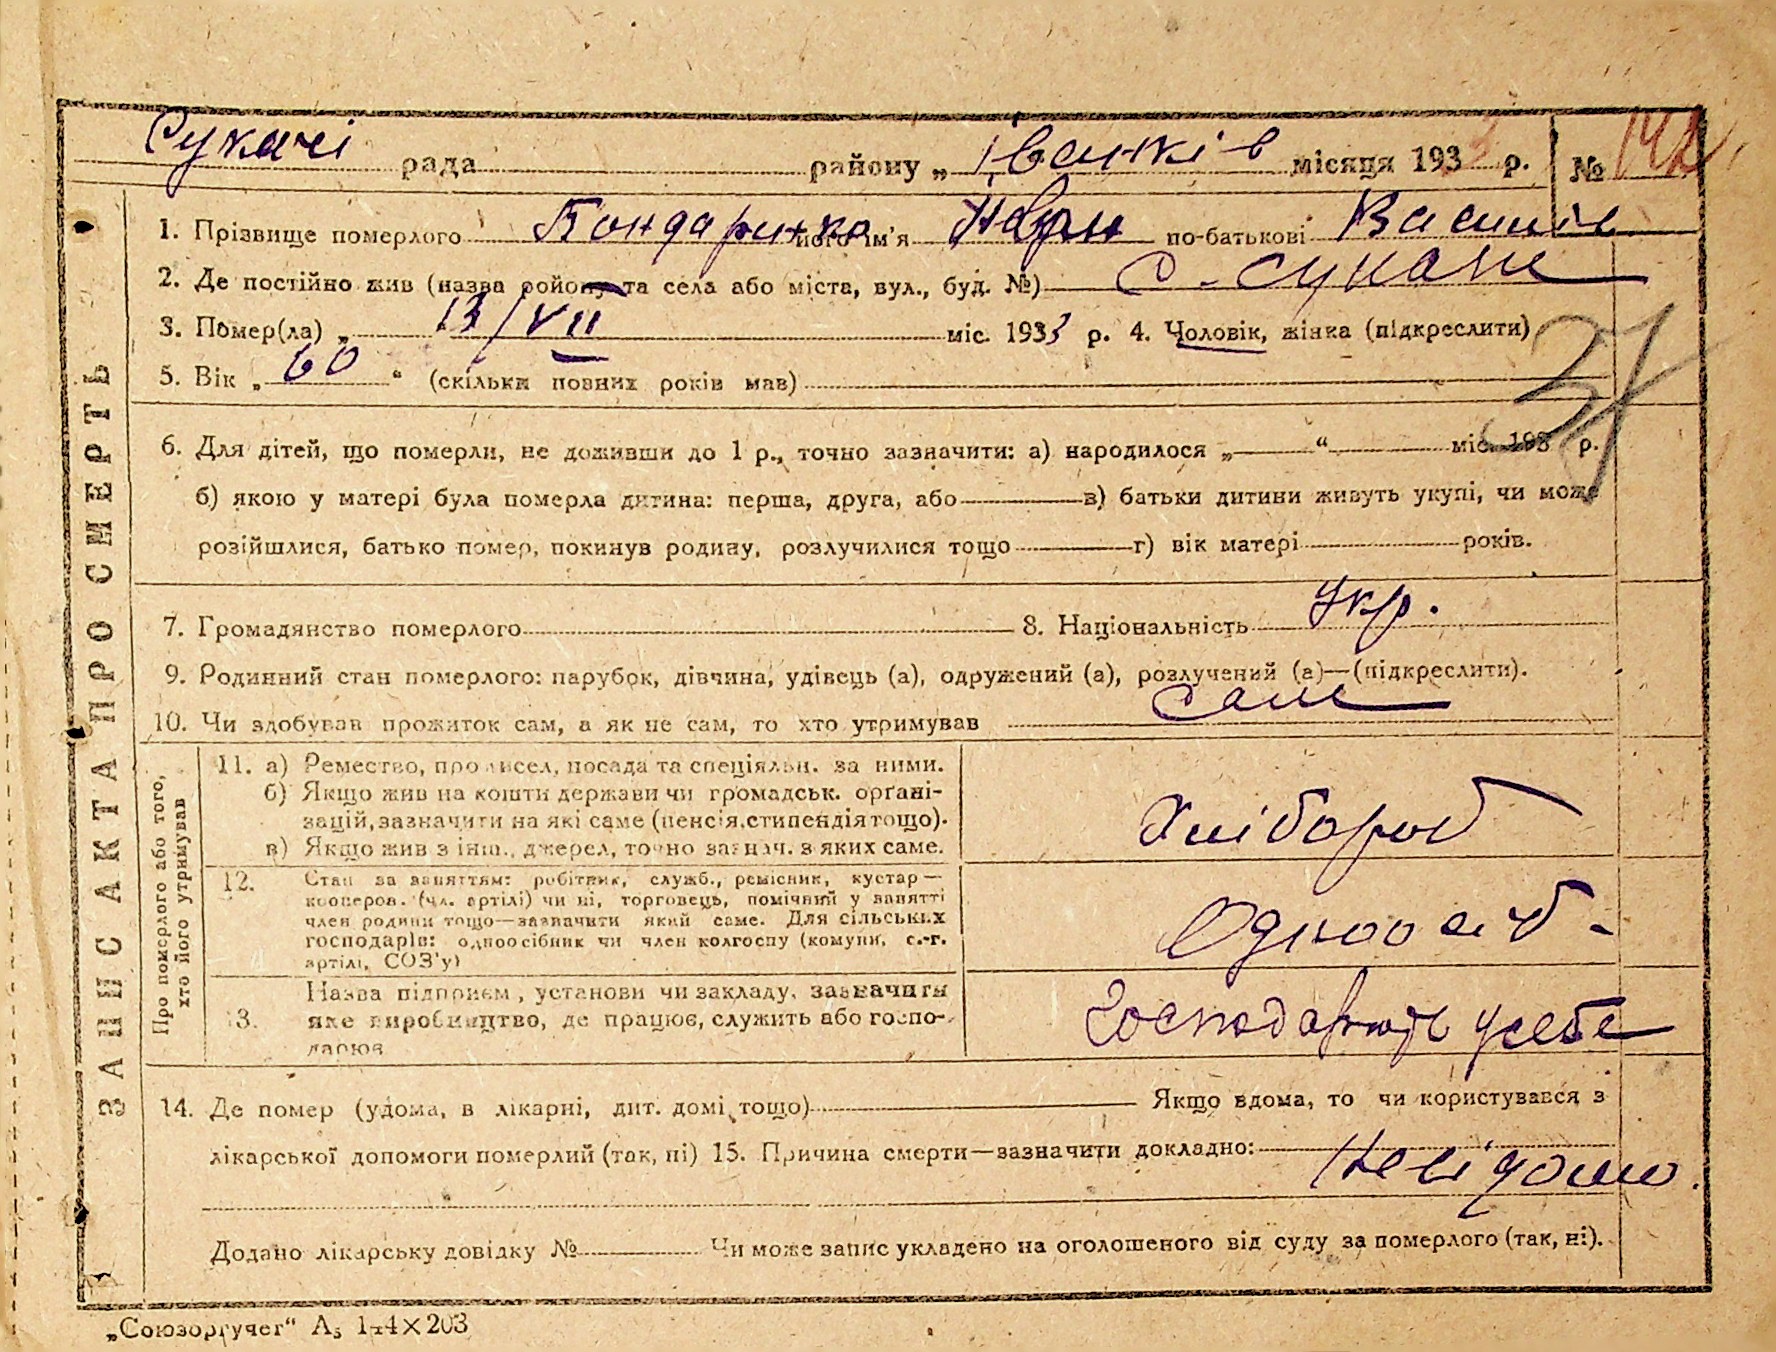 Сукачі рада району „ Іванків місяця 1933 р. № 142
ЗАПИС АКТА ПРО СМЕРТЬ
1. Прізвище померлого Бондаринко його ім'я по-батькові Василів
2. Де постійно жив (назва району та села або міста, вул., буд. №) с. Сукачі
3. Помер(ла) „ 13/VII міс. 1933 р. 4. Чоловік, жінка (підкреслити)
5. Вік „ 60 “ (скільки повних років мав)
37
6. Для дітей, що померли, не доживши до 1 р., точно зазначити: а) народилося „ “ міс. 193 р.
б) якою у матері була померла дитина: перша, друга, або в) батьки дитини живуть укупі, чи може
розійшлися, батько помер, покинув родину, розлучилися тощо г) вік матері років.
7. Громадянство померлого 8. Національність Укр.
9. Родинний стан померлого: парубок, дівчина, удівець (а), одружений (а), розлучений (а)—(підкреслити).
10. Чи здобував прожиток сам, а як не сам, то хто утримував сам
Про померлого або того,
хто його утримував
11. а) Ремество, промисел, посада та спеціяльн. за ними.
б) Якщо жив на кошти держави чи громадськ. орґані-
зацій, зазначити на які саме (пенсія, стипендія тощо).
в) Якщо жив з інш., джерел, точно зазнач. з яких саме.
Хлібороб
12. Стан за заняттям: робітник, служб., ремісник, кустар—
кооперов. (чл. артілі) чи ні, торговець, помічний у занятті
член родини тощо—зазначити який саме. Для сільських
господарів: одноосібник чи член колгоспу (комуни, с.-г.
артілі, СОЗ'у)
Одноосіб-
13. Назва підприєм., установи чи закладу, зазначити
яке виробництво, де працює, служить або госпо-
дарює
Господарють усебе
14. Де помер (удома, в лікарні, дит. домі, тощо) Якщо вдома, то чи користувався з
лікарської допомоги померлий (так, ні) 15. Причина смерти—зазначити докладно:
Невідомо.
Додано лікарську довідку № Чи може запис укладено на оголошеного від суду за померлого (так, ні).
„Союзоргучет“ А₅ 1-4×203